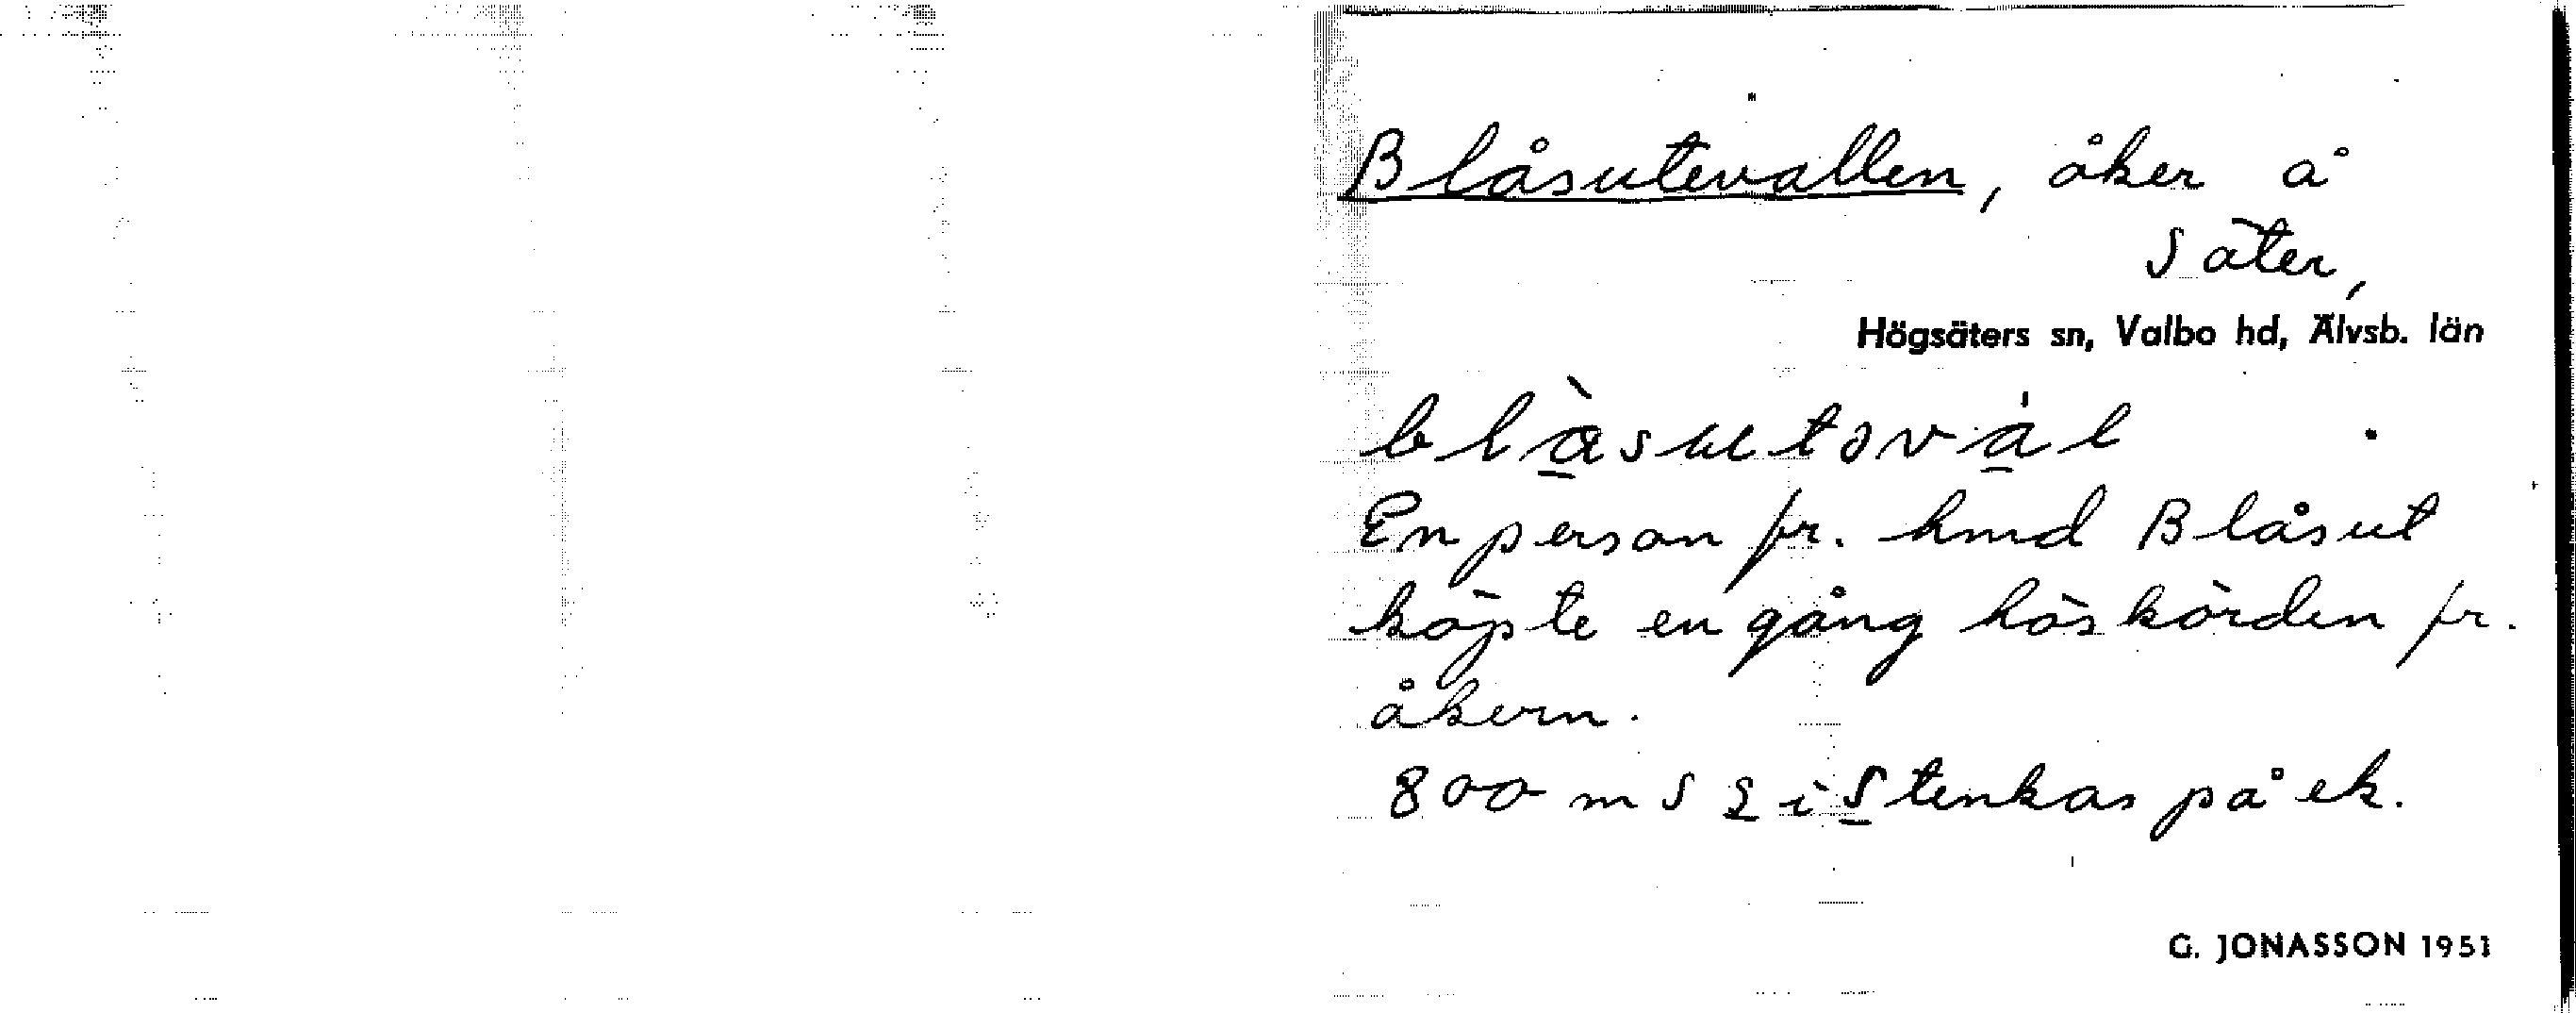 Blåsutevallen, åker å
Säter,
Högsäters sn, Valbo hd, Älvsb. län
blàsutəvál
En person fr. hmd Blåsut
köpte en gång höskörden fr.
åkern.
800 m S S i Stenkas på ek.
G. JONASSON 1951